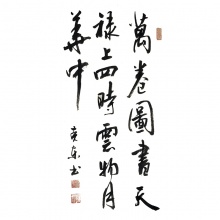 萬卷圖書天
祿上四時雲物月
華中
克東书